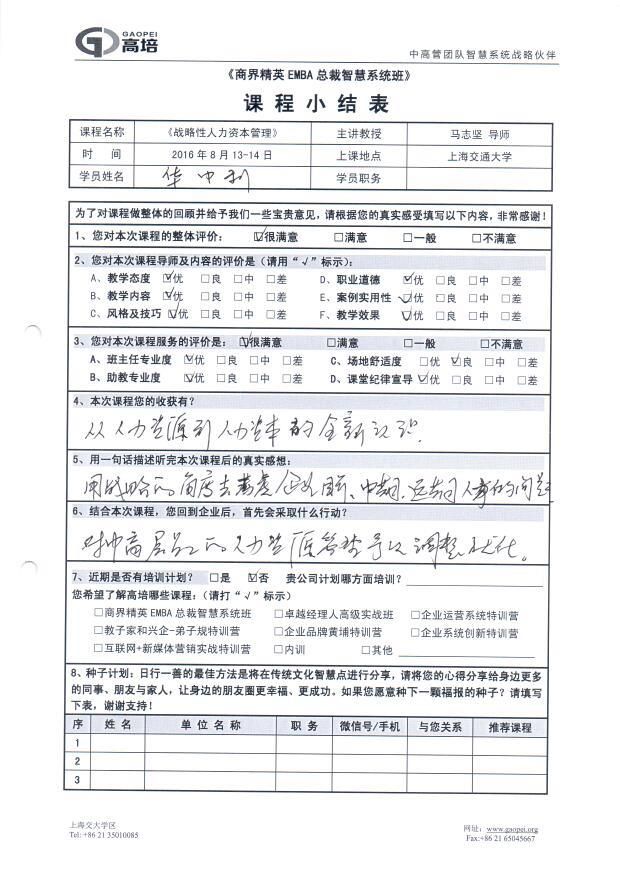 GAOPEI
高培
中高管团队智慧系统战略伙伴
《商界精英 EMBA 总裁智慧系统班》
课 程 小 结 表
课程名称 《战略性人力资本管理》 主讲教授 马志坚 导师
时 间 2016 年 8 月 13-14 日 上课地点 上海交通大学
学员姓名 华中利 学员职务
为了对课程做整体的回顾并给予我们一些宝贵意见，请根据您的真实感受填写以下内容，非常感谢！
1、您对本次课程的整体评价： ☑很满意 □满意 □一般 □不满意
2、您对本次课程导师及内容的评价是（请用“√”标示）：
A、教学态度 ☑优 □良 □中 □差 D、职业道德 ☑优 □良 □中 □差
B、教学内容 ☑优 □良 □中 □差 E、案例实用性 ☑优 □良 □中 □差
C、风格及技巧 ☑优 □良 □中 □差 F、教学效果 ☑优 □良 □中 □差
3、您对本次课程服务的评价是： ☑很满意 □满意 □一般 □不满意
A、班主任专业度 ☑优 □良 □中 □差 C、场地舒适度 □优 ☑良 □中 □差
B、助教专业度 ☑优 □良 □中 □差 D、课堂纪律宣导 ☑优 □良 □中 □差
4、本次课程您的收获有？
从人力资源到人力资本的全新认识.
5、用一句话描述听完本次课程后的真实感想：
用战略的角度去考虑企业目前、中期、远期人事的问题
6、结合本次课程，您回到企业后，首先会采取什么行动？
对中高层员工的人力资源管理予以调整、优化。
7、近期是否有培训计划？ □是 ☑否 贵公司计划哪方面培训？
您希望了解高培哪些课程：（请打“√”标示）
□商界精英 EMBA 总裁智慧系统班 □卓越经理人高级实战班 □企业运营系统特训营
□教子家和兴企-弟子规特训营 □企业品牌黄埔特训营 □企业系统创新特训营
□互联网+新媒体营销实战特训营 □内训 □其他
8、种子计划：日行一善的最佳方法是将在传统文化智慧点进行分享，请将您的心得分享给身边更多
的同事、朋友与家人，让身边的朋友圈更幸福、更成功。如果您愿意种下一颗福报的种子？请填写
下表，谢谢支持！
序 姓 名 单 位 名 称 职 务 微信号/手机 与您关系 推荐课程
1
2
3
上海交大学区 网址：www.gaopei.org
Tel: +86 21 35010085 Fax:+86 21 65045667